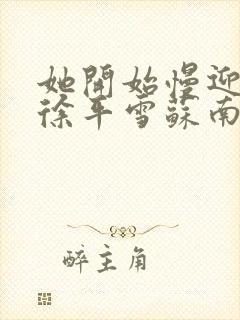 她開始慢迎
徐平雪蘇南
醉主角